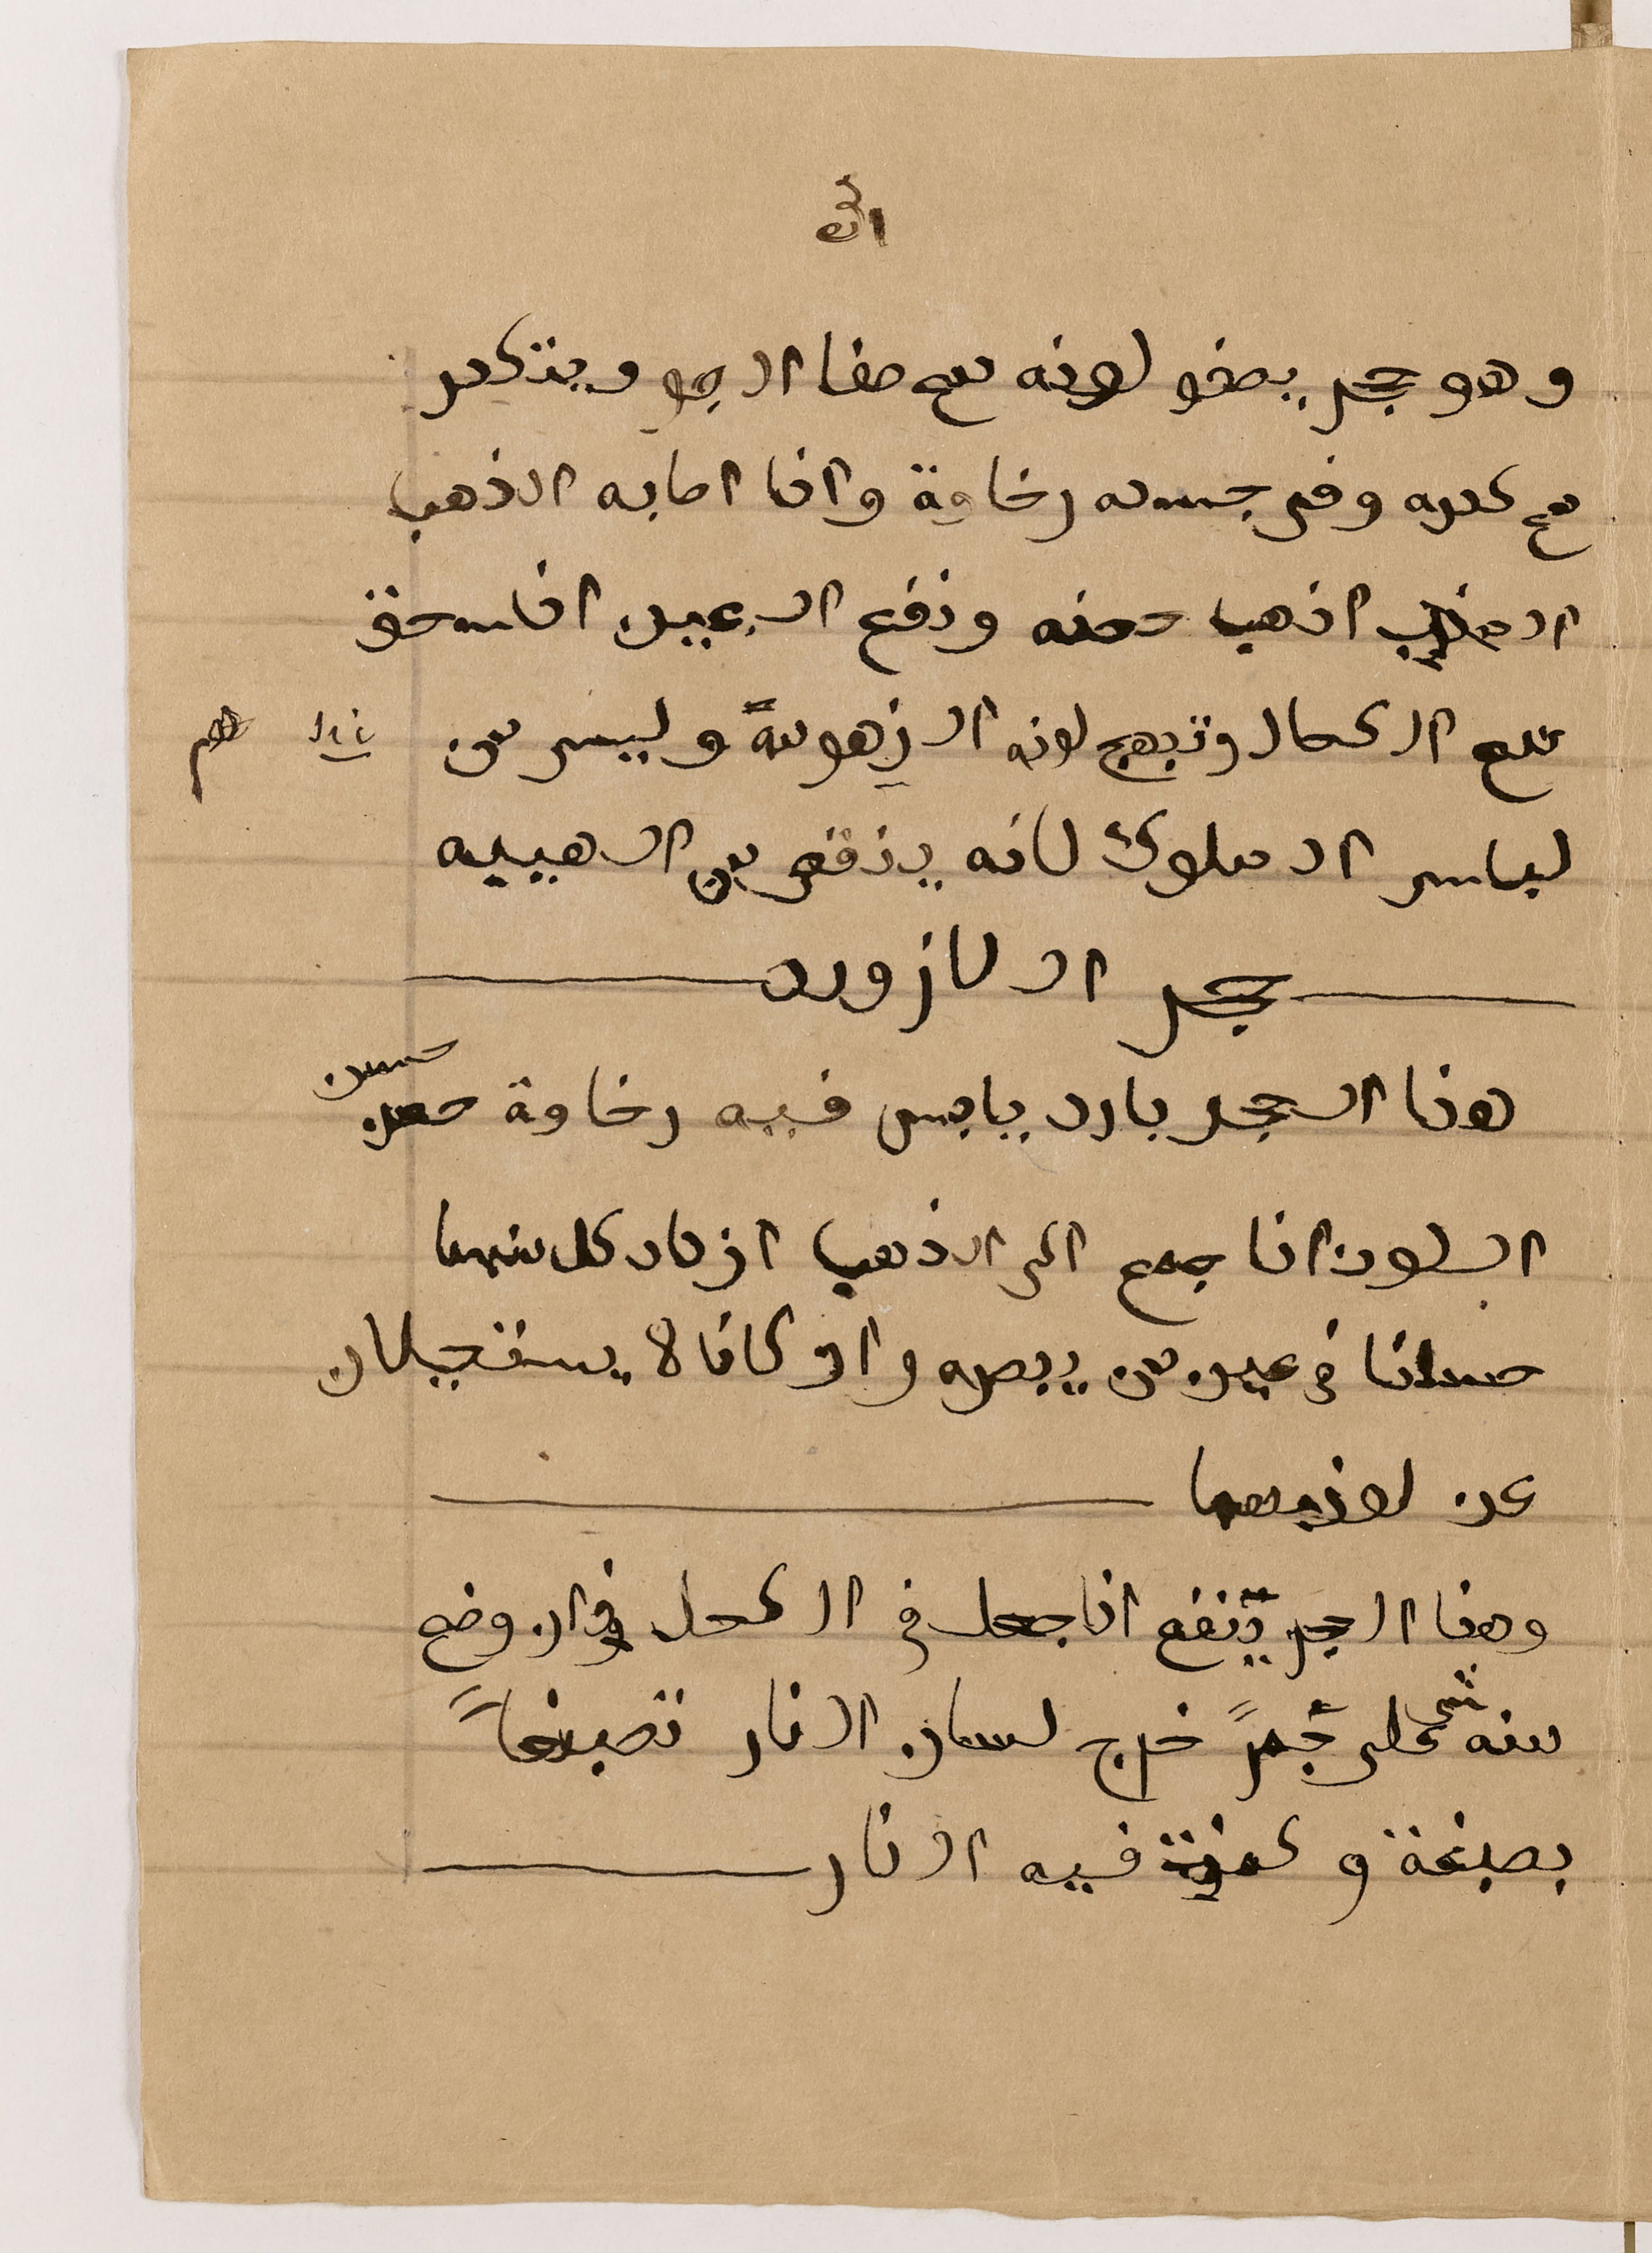 وهو حجر يصفو لونه مع صفا الجو ويتكدر
مع كدره وفى جسمه رخاوة واذا اصابه الذهب
اذهب حسنه ونفع العين اذا سحق
مع الاكحال وتبهج لونه الزهومة وليس من
لباس الملوك لانه ينقص من الهيبه
حجر اللازورد
هذا الحجر بارد يابس فيه رخاوة حسن
اللون اذا جمع الى الذهب ازداد كل منهما
حسنا فى عين من يبصره وان كانا لا يستحيلان
عن لونيهما
وهذا الحجر ينفع اذا جعل فى الكحل وان وضع
منه شى على جمرً خرج لسان النار تصبغاً
بصبغة و فيه النار